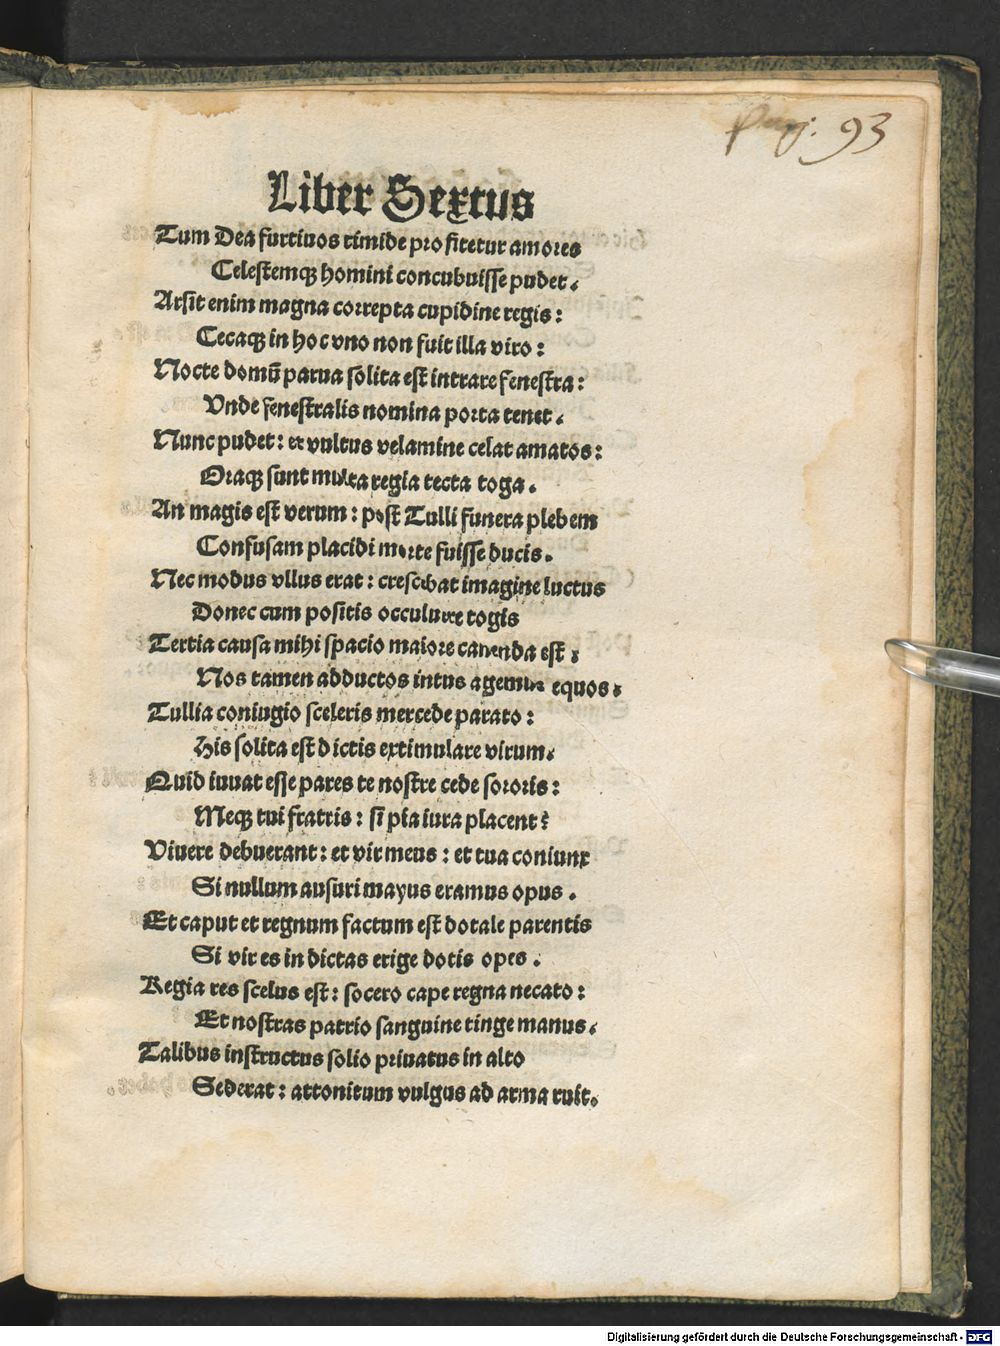 Pag: 93
Liber Sextus
Tum Dea furtiuos timide profitetur amores
Celestemqꝫ homini concubuisse pudet.
Arsit enim magna correpta cupidine regis:
Cecaqꝫ in hoc vno non fuit illa viro:
Nocte domū parua solita est intrare fenestra:
Vnde fenestralis nomina porta tenet.
Nunc pudet: et vultus velamine celat amatos:
Oraqꝫ sunt multa regia tecta toga.
An magis est verum: post Tulli funera plebem
Confusam placidi morte fuisse ducis.
Nec modus vllus erat: crescebat imagine luctus
Donec eum positis occuluere togis
Tertia causa mihi spacio maiore canenda est:
Nos tamen adductos intus agemus equos.
Tullia coniugio sceleris mercede parato:
His solita est dictis extimulare virum.
Quid iuuat esse pares te nostre cede sororis:
Meqꝫ tui fratris: si pia iura placent?
Viuere debuerant: et vir meus: et tua coniunx
Si nullum ausuri mayus eramus opus.
Et caput et regnum factum est dotale parentis
Si vir es in dictas erige dotis opes.
Regia res scelus est: socero cape regna necato:
Et nostras patrio sanguine tinge manus.
Talibus instructus solio priuatus in alto
Sederat: attonitum vulgus ad arma ruit.
Digitalisierung gefördert durch die Deutsche Forschungsgemeinschaft - DFG